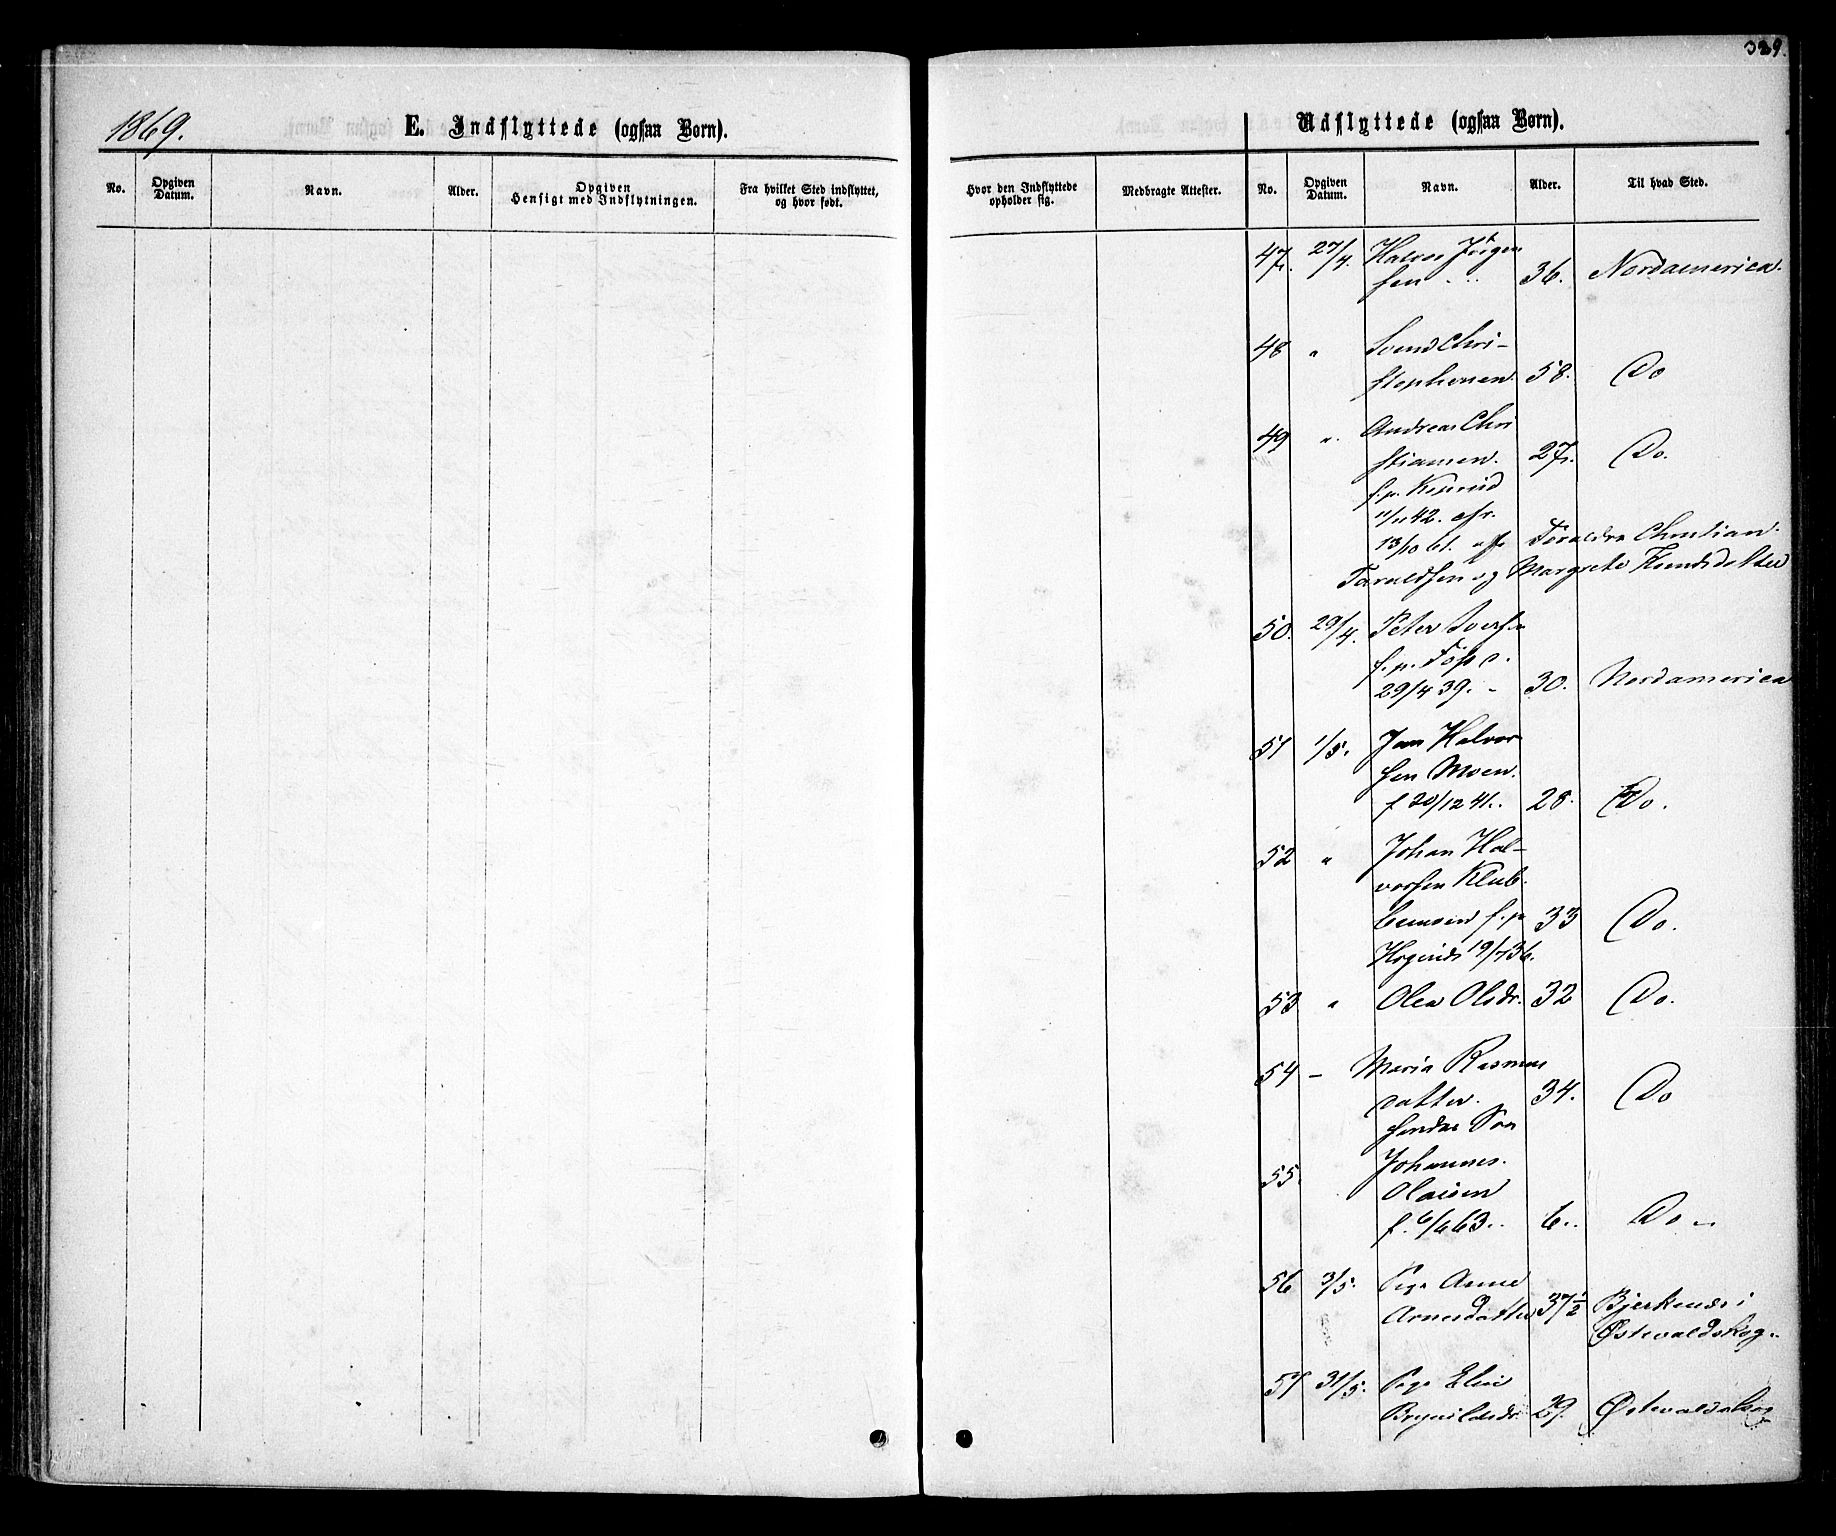 329.
1869.
E. Indflyttede (ogsaa Børn).
No.
Opgiven Datum.
Navn.
Alder.
Opgiven Hensigt med Indflytningen.
Fra hvilket Sted indflyttet, og hvor født.
Hvor den Indflyttede opholder sig.
Medbragte Attester.
Udflyttede (ogsaa Børn).
No.
Opgiven Datum.
Navn.
Alder.
Til hvad Sted.
47. 27/4. Halvor Jörgen
sen 36. Nordamerica.
48 " Svend Chri-
stophersen. 58. Do
49 ". Andreas Chri
stiansen. 27. Do.
f. p.
11/11 42. cfr.
13/10 61. af Forældre Christian
Taraldsen og Margrete Knudsdatter
50. 29/4. Peter Iversen
f. p. Fosse.
29/4 39. - 30. Nordamerica
51 1/5. Jens Halvor
sen Moen.
f. 20/12 41. 28. Do.
52 " Johan Hal-
vorsen Klub
f. p 33 Do.
19/7 36.
53 " Olea Olsdr. 32 Do.
54 - Maria Rasmus
datter. 34. Do
hendes Søn
55. Johannes.
Olaisen
f. 6/6 63.. 6.. Do -
56 3/5. Pige Anne
Arnesdatter 37½ Bjerkenæs i
Østevaldskog.
57 31/5. Pige Elise
Brynildsdr. 29. Østevaldskog